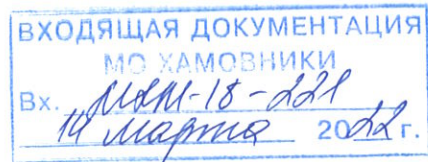 ВХОДЯЩАЯ ДОКУМЕНТАЦИЯ
МО ХАМОВНИКИ
Вх. МХМ-18-221
14 марта 2022 г.